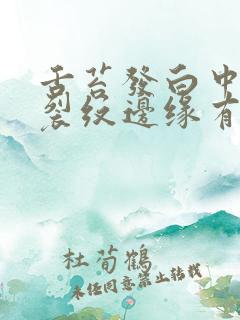 舌苔發白中
裂纹邊缘有
杜荀鶴
未经同意禁止转载